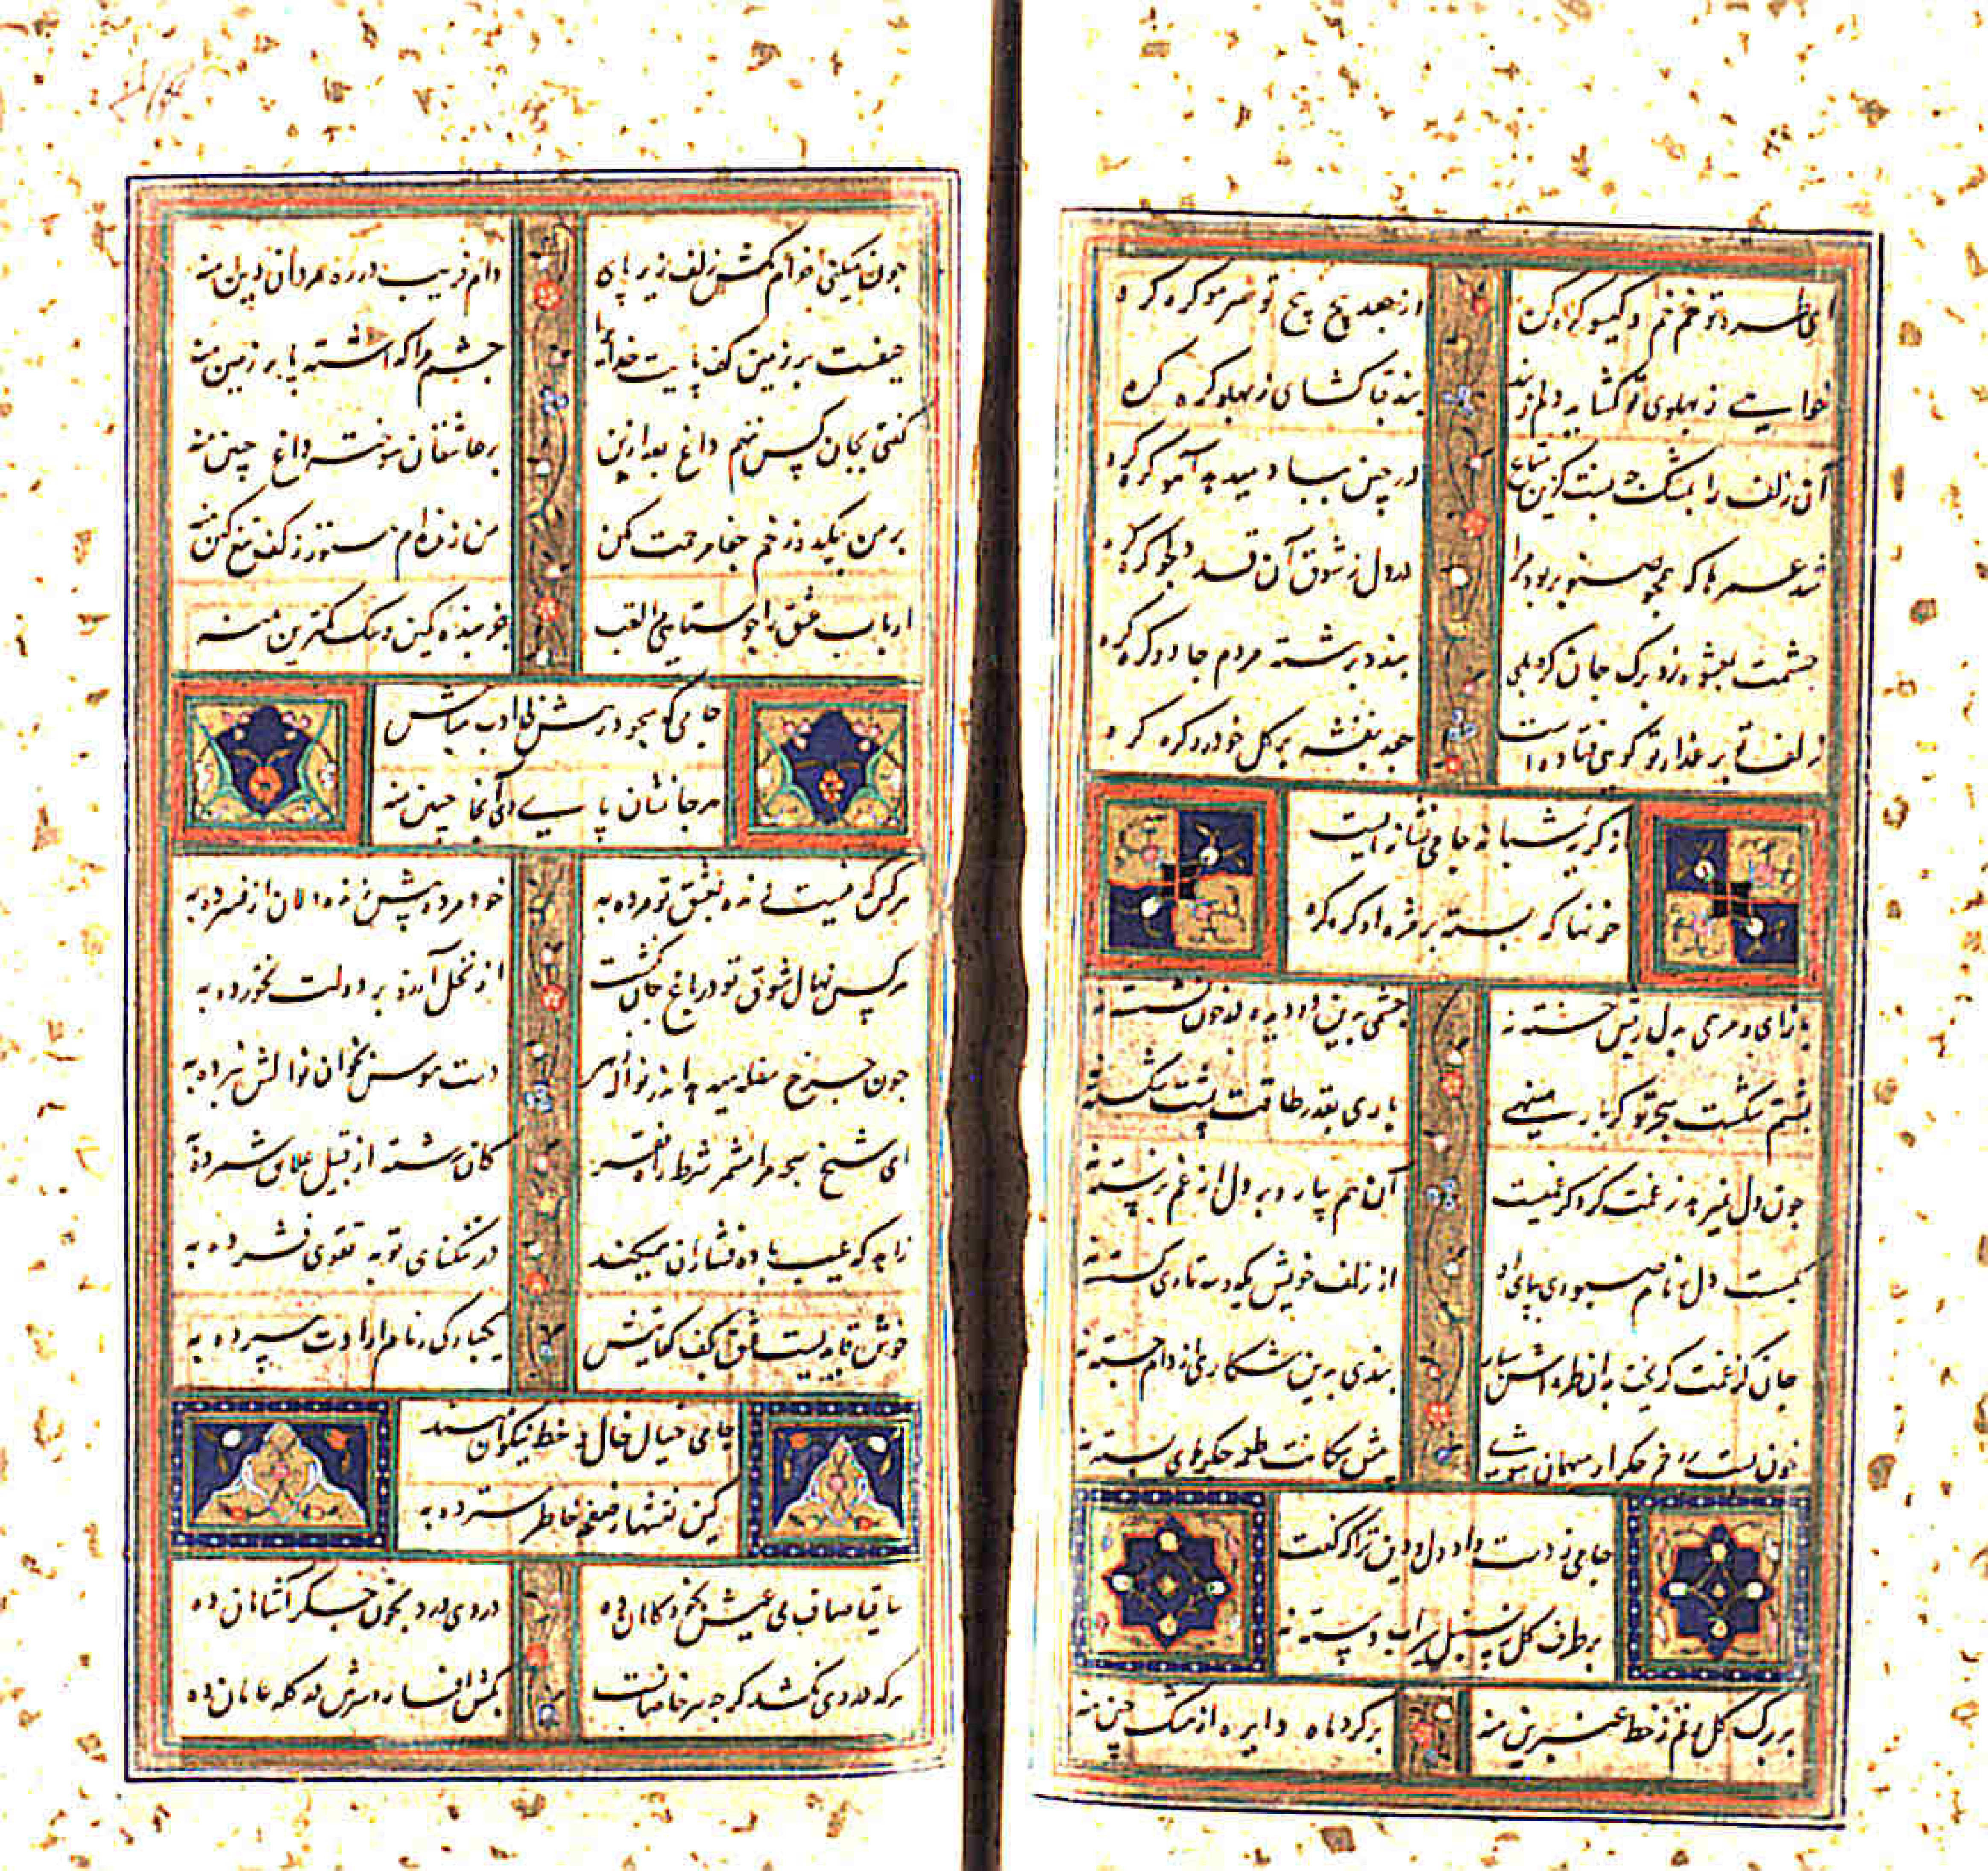 ای طره تو خم خم و گیسو گره گره از جعد پیچ پیچ تو هر مو گره گره
خواهی ز پهلوی تو گشاید دلم ز بند بند قبا گشای ز پهلو گره گره
آن زلف را بمشک چه نسبت کزین متاع در چین بباد میدهد آهو گره گره
شد عمرها که همچو صنوبر بود مرا در دل ز شوق آن قد دلجو گره گره
چشمت بعشوه زد برگ جان گره بلی بندد برشته مردم جادو گره گره
زلف تو بر عذار تو گویی نهاده است جعد بنفشه بر گل خودرو گره گره
از گریه شبانه جامی نشانه ایست
خونها که بسته بر مژه او گره گره
بازای و مرهمی بدل ریش خسته نه چشمی بدین دو دیده در خون نشسته نه
پشتم شکست هجر تو گر بار مینهی باری بقدر طاقت پشت شکسته نه
چون دل بغیر درد و غمت گرد کرد نیست آن هم بیار و بر دل از غم نرسته نه
بگسست دل زمام صبوری بپای او از زلف خویش یکدو سه تار گسسته نه
جان کز غمت گریخت بدان طره اش سپار بندی بدین شکاری از دام جسته نه
خون بست زخم جگر از میهمان تویی پیش سگانت طعمه جگرهای بسته نه
جامی ز دست داد دل و دین ترا که گفت
بر طرف گل ز سنبل سیراب دسته نه
بر برگ گل رقم ز خط عنبرین منه بر گرد ماه دایره از مشک چین منه
چون میکنی خرام مکش زلف زیر پای دام فریب در ره مردان دین منه
حیفست بر زمین کف پایت خدای را چشم مرا گذاشته پا بر زمین منه
گفتی بجان کس ننهم داغ بعد ازین بر عاشقان سوخته داغ چنین منه
بر من بیکدو زخم جفا مرحمت مکن من زنده ام هنوز ز کف تیغ کین منه
ارباب عشق را چو ستایی لقب جز بنده کمین و سگ کمترین منه
جامی که بجو در رهش ترک ادب مباش
هر جا نشان پای وی آنجا جبین منه
هر کس که نیست زنده بعشق تو مرده به خود مرده پیش زنده دلان از فسرده به
هر کس نهال شوق تو در باغ جان نکشت از نخل آرزو بر دولت نخورده به
چون چرخ سفله میدهد از زر نواله دست هوس بخوان نوالش نبرده به
ای شیخ سبحه را مشمر شرط راه فقر کان رشته از قبیل علایق شمرده به
زاهد که عیب باده فشاران همیکند در تنگنای توبه و تقوی فشرده به
خوش قایدیست شوق بکف کفایتش یکبارگی زمام ارادت سپرده به
جامی خیال خال و خط نیکوان مبند
کین نقشها ز صفحه خاطر سترده به
ساقیا صاف می عیش بخودکامان ده دردی درد بخون جگر آشامان ده
هر که دردی نکشد گر چه سر خاصانست بکش افسار و سرش در گله عامان ده